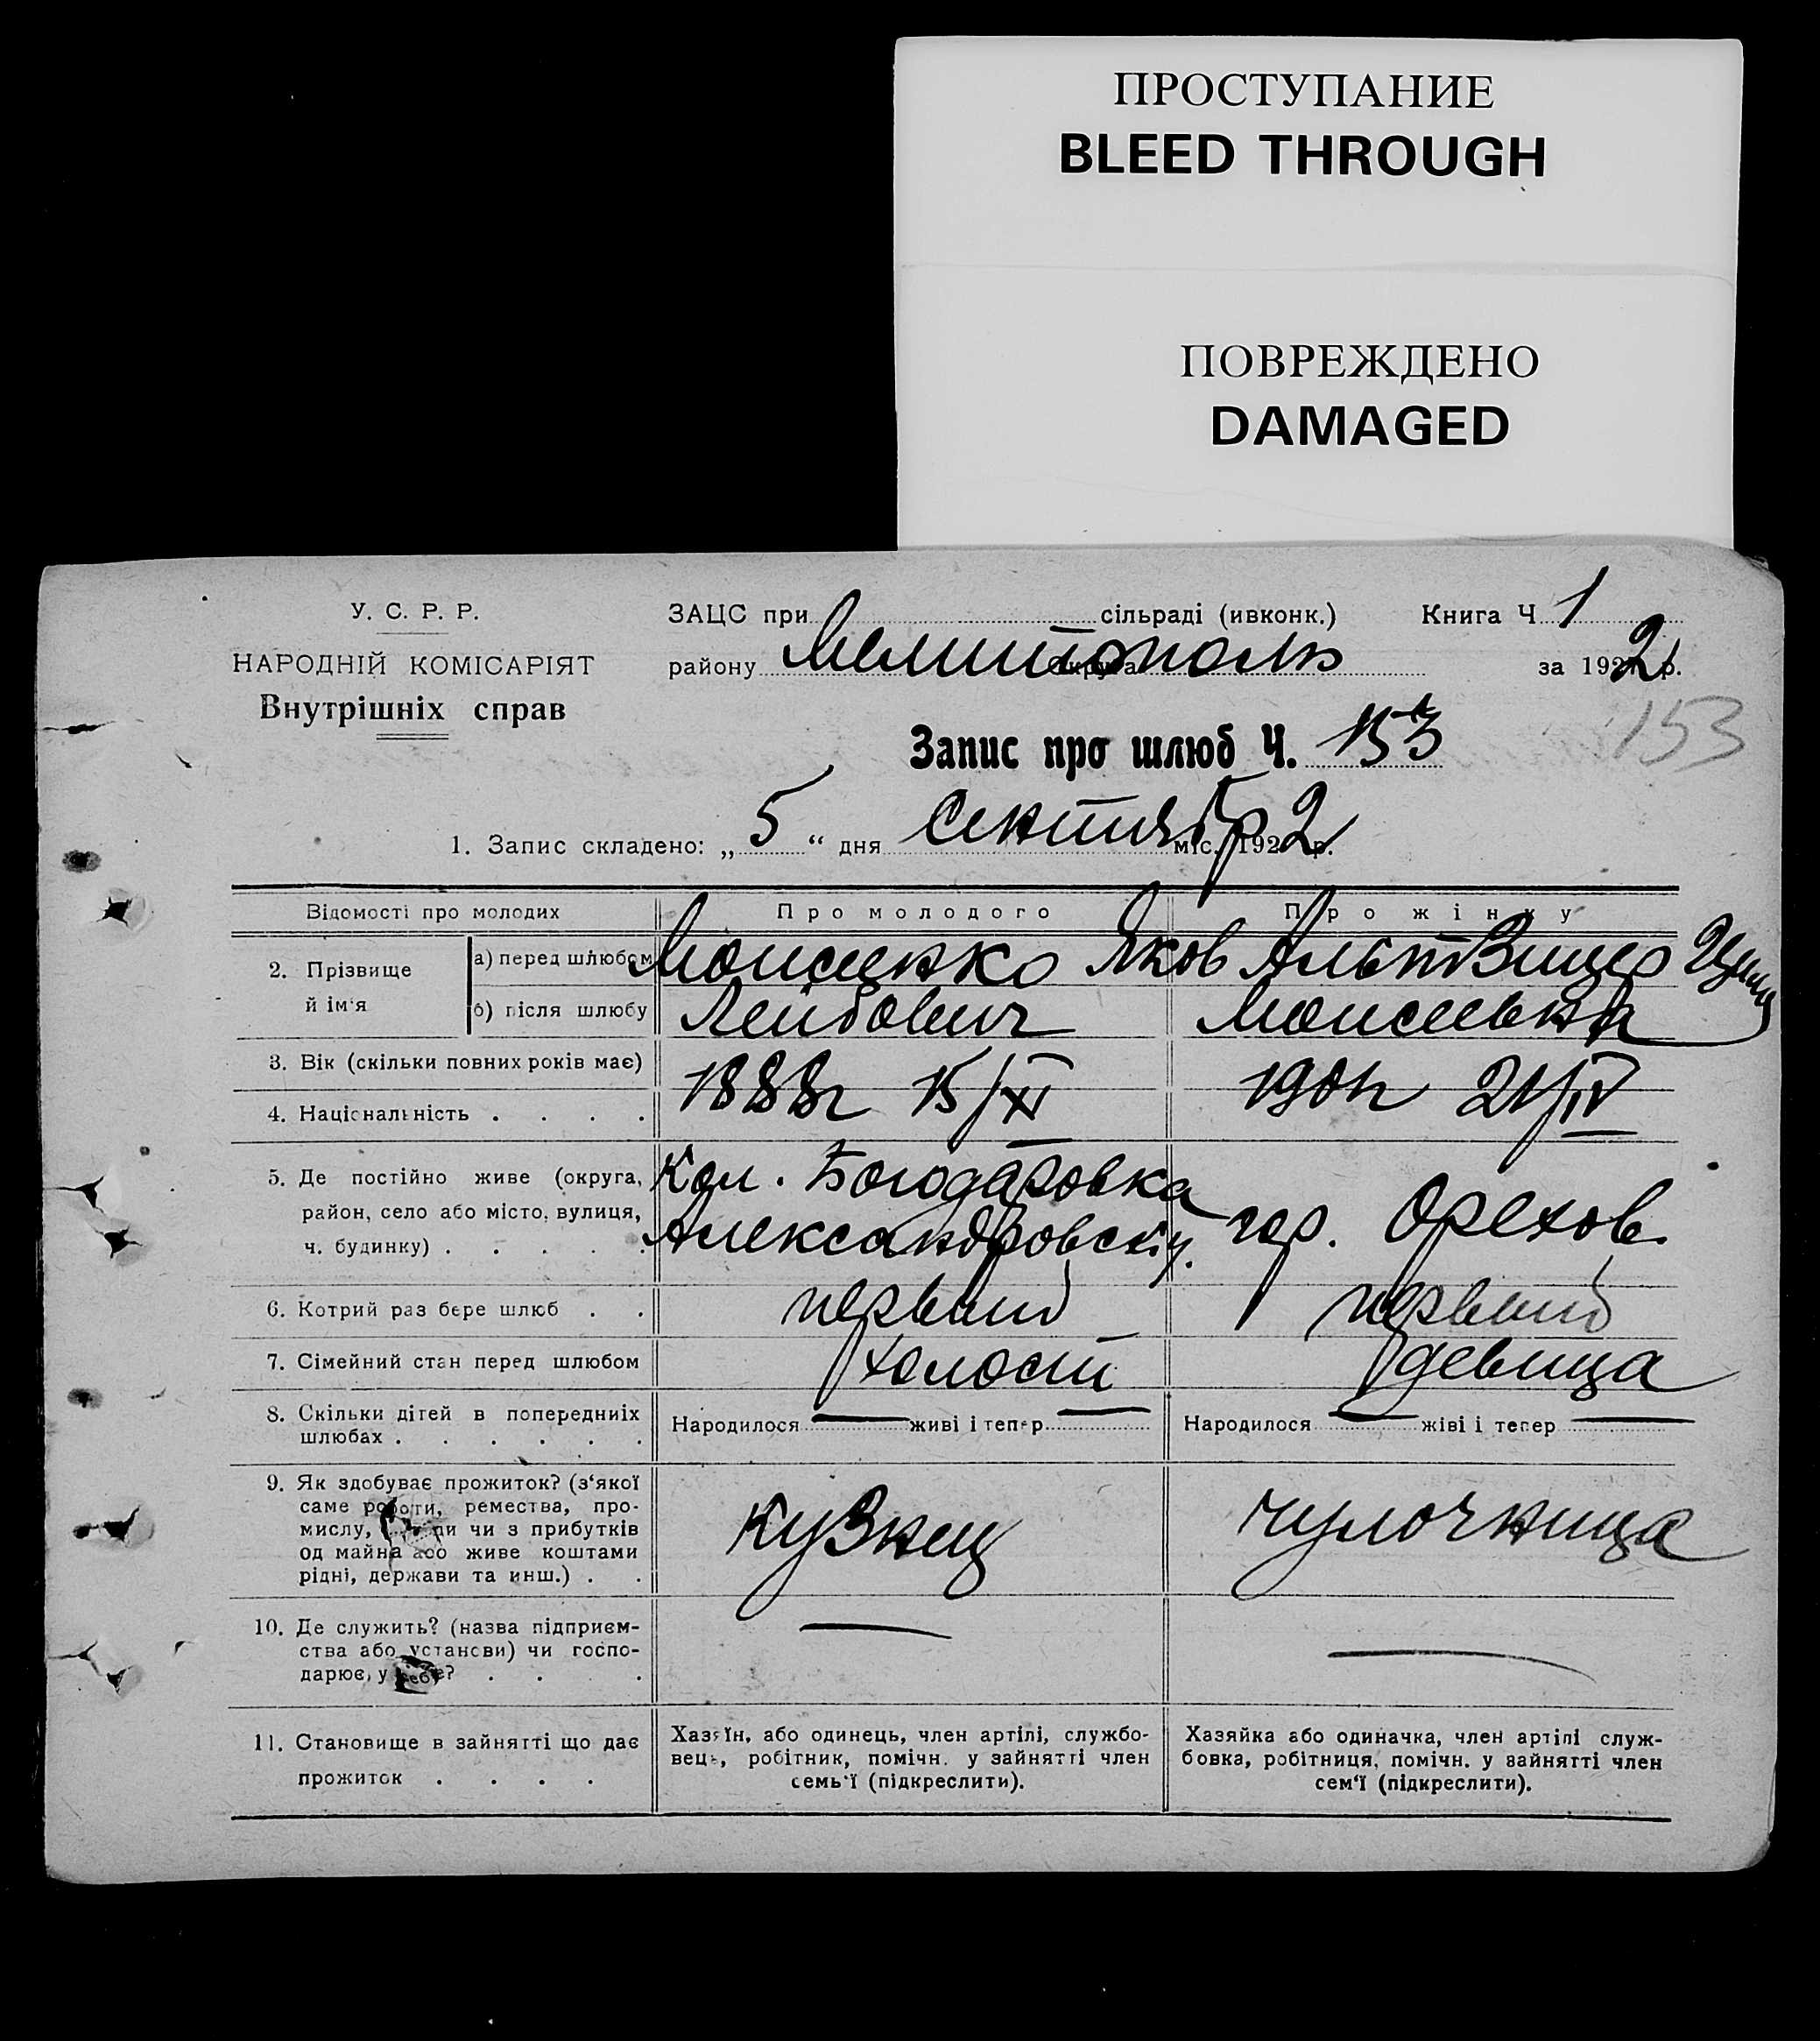 ПРОСТУПАНИЕ
BLEED THROUGH
ПОВРЕЖДЕНО
DAMAGED
У. С. Р. Р.
НАРОДНІЙ КОМІСАРІЯТ
Внутрішніх справ
ЗАЦС при сільраді (ивконк.) Книга Ч 1
району Мелитополь округа за 1922 р.
153
Запис про шлюб Ч. 153
1. Запис складено: „ 5 “ дня Сентября міс. 1922 р.
Відомості про молодих Про молодого Про жінку
2. Прізвище й ім‘я
а) перед шлюбом Моисеенко Яков Альтвицер
б) після шлюбу Лейбович Моисеевна
3. Вік (скільки повних років має)
4. Національність . . . .
1888г 15/XI 1901г 21/IV
5. Де постійно живе (округа,
район, село або місто, вулиця,
ч. будинку) . . . . .
Кол. Богодаровка
Александровск у. гор. Орехов
6. Котрий раз бере шлюб . . первый первый
7. Сімейний стан перед шлюбом холост девица
8. Скільки дітей в попередниіх
шлюбах . . . . . .
Народилося живі і тепер Народилося жіві і тепер
9. Як здобуває прожиток? (з‘якої
саме роботи, ремества, про-
мислу, чи з прибутків
од майна або живе коштами
рідні, держави та инш.) . .
кузнец чулочница
10. Де служить? (назва підприєм-
ства або установи) чи госпо-
дарює, у себе? . . .
11. Становище в зайнятті що дає
прожиток . . . .
Хазяїн, або одинець, член артілі, службо-
вець, робітник, помічн. у зайнятті член
семь‘ї (підкреслити).
Хазяйка або одиначка, член артілі служ-
бовка, робітниця, помічн. у зайнятті член
сем‘ї (підкреслити).